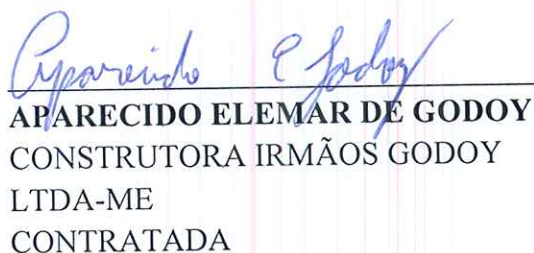 Aparecido E Godoy
APARECIDO ELEMAR DE GODOY
CONSTRUTORA IRMÃOS GODOY
LTDA-ME
CONTRATADA